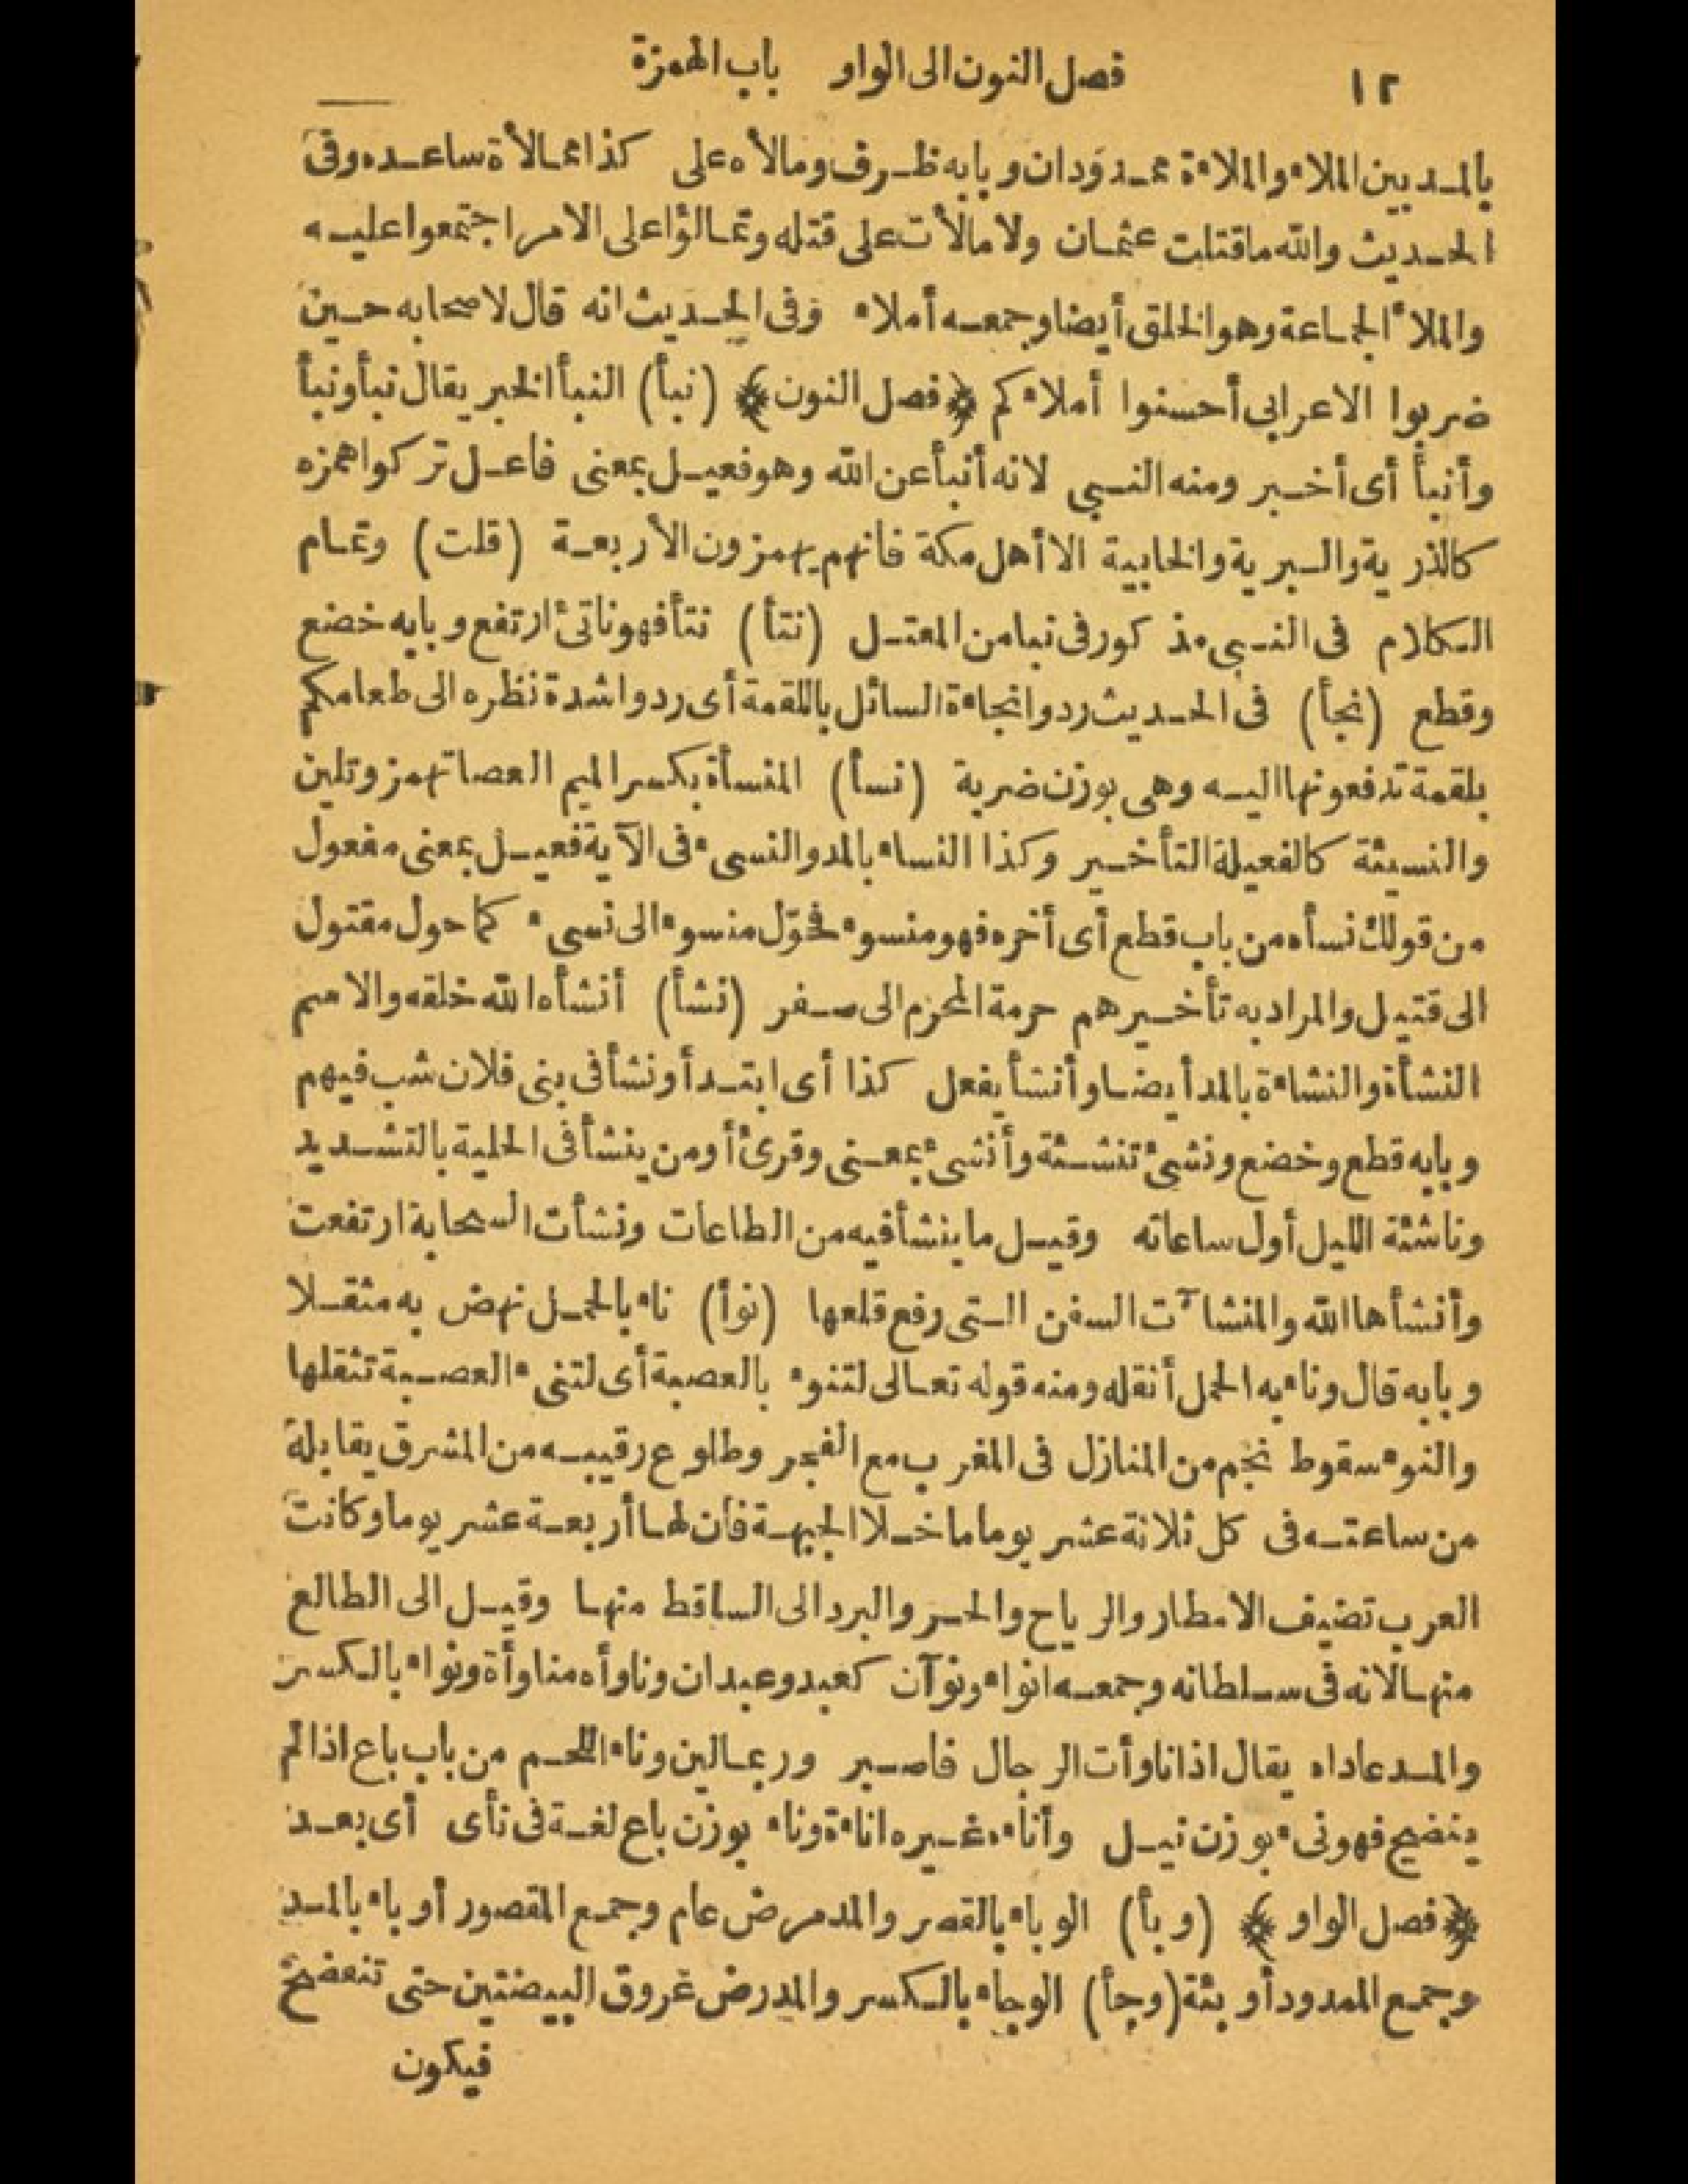 ١٢ فصل النون الى الواو باب الهمزة
بالمد بين الملاء والملاءة ممدودان وبابه ظرف ومالأه على كذا ممالأة ساعده وفى
الحديث والله ما قتلت عثمان ولا مالأت على قتله وتمالؤا على الامر اجتمعوا عليه
والملأ الجماعة وهو الخلق أيضا وجمعه أملاء وفى الحديث انه قال لاصحابه حين
ضربوا الاعرابى أحسنوا أملاءكم ﴿فصل النون﴾ (نبأ) النبأ الخبر يقال نبأ ونبأ
وأنبأ أى أخبر ومنه النبي لانه أنبأ عن الله وهو فعيل بمعنى فاعل تركوا همزه
كالذرية والبرية والخابية الا أهل مكة فانهم يهمزون الأربعة (قلت) وتمام
الكلام فى النبي مذكور فى نبا من المعتل (نتأ) نتأ فهو ناتئ ارتفع وبابه خضع
وقطع (نجأ) فى الحديث ردوا نجاءة السائل باللقمة أى ردوا شدة نظره الى طعامكم
بلقمة تدفعونها اليه وهى بوزن ضربة (نسأ) المنسأة بكسر الميم العصا تهمز وتلين
والنسيئة كالفعيلة التأخير وكذا النساء بالمد والنسىء فى الآية فعيل بمعنى مفعول
من قولك نسأه من باب قطع أى أخره فهو منسوء فحوّل منسوء الى نسىء كما حول مقتول
الى قتيل والمراد به تأخيرهم حرمة المحرم الى صفر (نشأ) أنشأه الله خلقه والاسم
النشأة والنشاءة بالمد أيضا وأنشأ يفعل كذا أى ابتدأ ونشأ فى بنى فلان شب فيهم
وبابه قطع وخضع ونشئ تنشئة وأنشئ بمعنى وقرئ أومن ينشأ فى الحلية بالتشديد
وناشئة الليل أول ساعاته وقيل ما ينشأ فيه من الطاعات ونشأت السحابة ارتفعت
وأنشأها الله والمنشاآت السفن التى رفع قلعها (نوأ) ناء بالحمل نهض به مثقلا
وبابه قال وناء به الحمل أثقله ومنه قوله تعالى لتنوء بالعصبة أى لتنىء العصبة تثقلها
والنوء سقوط نجم من المنازل فى المغرب مع الفجر وطلوع رقيبه من المشرق يقابله
من ساعته فى كل ثلاثة عشر يوما ما خلا الجبهة فان لها أربعة عشر يوما وكانت
العرب تضيف الامطار والرياح والحر والبرد الى الساقط منها وقيل الى الطالع
منها لانه فى سلطانه وجمعه انواء ونوآن كعبد وعبدان وناوأه مناوأة ونواء بالكسر
والمد عاداه يقال اذا ناوأت الرجال فاصبر وربما لين وناء اللحم من باب باع اذا لم
ينضج فهو نىء بوزن نيل وأناءه غيره اناءة وناء بوزن باع لغة فى نأى أى بعد
﴿فصل الواو﴾ (وبأ) الوباء بالقصر والمد مرض عام وجمع المقصور أوباء بالمد
وجمع الممدود أوبئة (وجأ) الوجاء بالكسر والمد رض عروق البيضتين حتى تنفضخ
فيكون